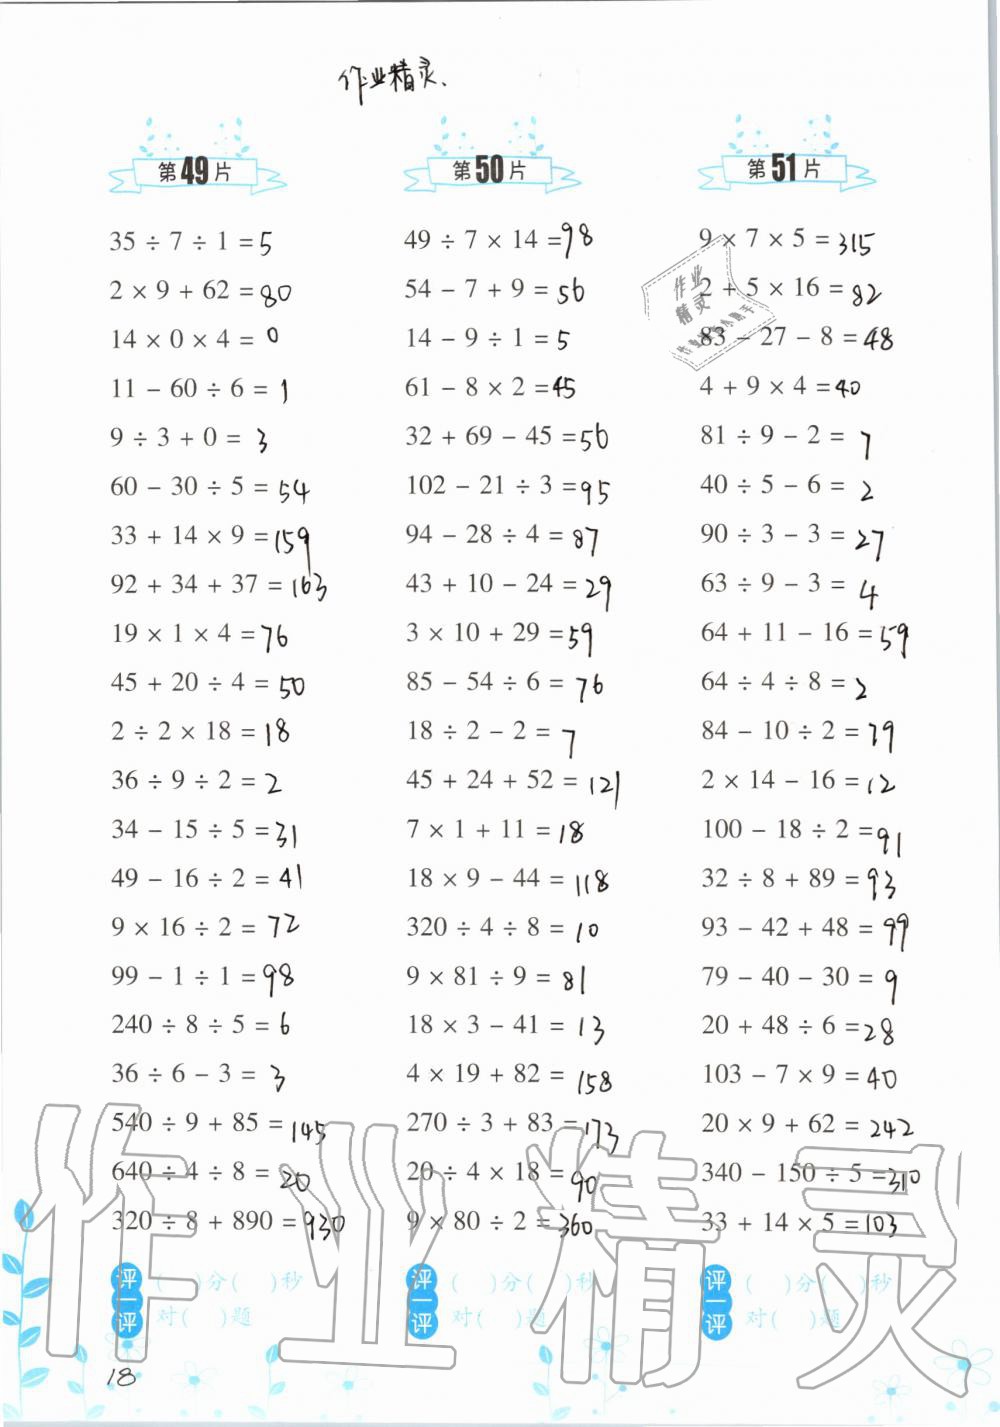 作业精灵、
第49片
35 ÷ 7 ÷ 1 = 5
2 × 9 + 62 = 80
14 × 0 × 4 = 0
11 - 60 ÷ 6 = 1
9 ÷ 3 + 0 = 3
60 - 30 ÷ 5 = 54
33 + 14 × 9 = 159
92 + 34 + 37 = 163
19 × 1 × 4 = 76
45 + 20 ÷ 4 = 50
2 ÷ 2 × 18 = 18
36 ÷ 9 ÷ 2 = 2
34 - 15 ÷ 5 = 31
49 - 16 ÷ 2 = 41
9 × 16 ÷ 2 = 72
99 - 1 ÷ 1 = 98
240 ÷ 8 ÷ 5 = 6
36 ÷ 6 - 3 = 3
540 ÷ 9 + 85 = 145
640 ÷ 4 ÷ 8 = 20
320 ÷ 8 + 890 = 930
评一评
( )分( )秒
对( )题
第50片
49 ÷ 7 × 14 = 98
54 - 7 + 9 = 56
14 - 9 ÷ 1 = 5
61 - 8 × 2 = 45
32 + 69 - 45 = 56
102 - 21 ÷ 3 = 95
94 - 28 ÷ 4 = 87
43 + 10 - 24 = 29
3 × 10 + 29 = 59
85 - 54 ÷ 6 = 76
18 ÷ 2 - 2 = 7
45 + 24 + 52 = 121
7 × 1 + 11 = 18
18 × 9 - 44 = 118
320 ÷ 4 ÷ 8 = 10
9 × 81 ÷ 9 = 81
18 × 3 - 41 = 13
4 × 19 + 82 = 158
270 ÷ 3 + 83 = 173
20 ÷ 4 × 18 = 90
9 × 80 ÷ 2 = 360
评一评
( )分( )秒
对( )题
第51片
9 × 7 × 5 = 315
2 + 5 × 16 = 82
83 - 27 - 8 = 48
4 + 9 × 4 = 40
81 ÷ 9 - 2 = 7
40 ÷ 5 - 6 = 2
90 ÷ 3 - 3 = 27
63 ÷ 9 - 3 = 4
64 + 11 - 16 = 59
64 ÷ 4 ÷ 8 = 2
84 - 10 ÷ 2 = 79
2 × 14 - 16 = 12
100 - 18 ÷ 2 = 91
32 ÷ 8 + 89 = 93
93 - 42 + 48 = 99
79 - 40 - 30 = 9
20 + 48 ÷ 6 = 28
103 - 7 × 9 = 40
20 × 9 + 62 = 242
340 - 150 ÷ 5 = 310
33 + 14 × 5 = 103
评一评
( )分( )秒
对( )题
作业
精灵
作业精灵
18